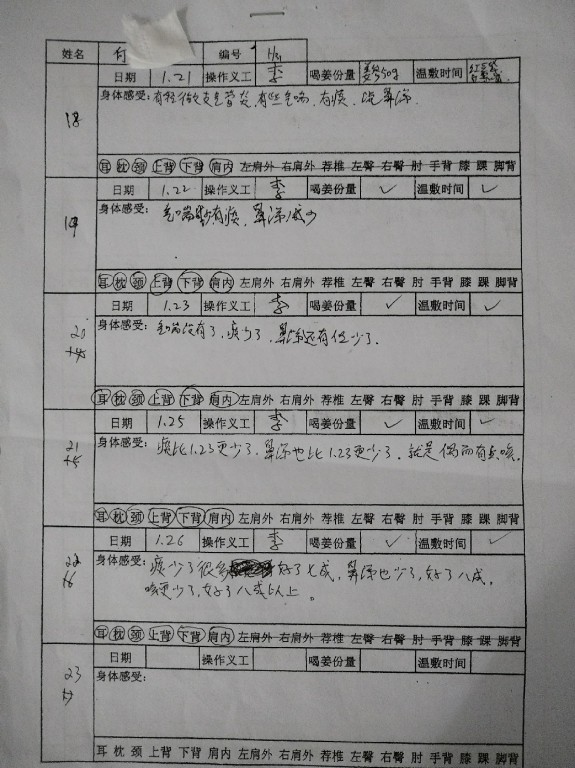 姓名 何 编号
18 日期 1.21 操作义工 李 喝姜份量 姜粉50g 温敷时间
身体感受: 有轻微支气管炎,有些气喘,有痰,流鼻涕.
耳 枕 颈 上背 下背 肩内 左肩外 右肩外 荐椎 左臀 右臀 肘 手背 膝 踝 脚背
19 日期 1.22 操作义工 李 喝姜份量 ✓ 温敷时间 ✓
身体感受: 气喘 有痰,鼻涕减少
耳 枕 颈 上背 下背 肩内 左肩外 右肩外 荐椎 左臀 右臀 肘 手背 膝 踝 脚背
20 日期 1.23 操作义工 李 喝姜份量 ✓ 温敷时间 ✓
身体感受: 气喘没有了,痰少了,鼻涕还有但少了.
耳 枕 颈 上背 下背 肩内 左肩外 右肩外 荐椎 左臀 右臀 肘 手背 膝 踝 脚背
21 日期 1.25 操作义工 李 喝姜份量 ✓ 温敷时间 ✓
+5 身体感受: 痰比1.23更少了,鼻涕也比1.23更少了,就是偶而有点咳.
耳 枕 颈 上背 下背 肩内 左肩外 右肩外 荐椎 左臀 右臀 肘 手背 膝 踝 脚背
22 日期 1.26 操作义工 李 喝姜份量 ✓ 温敷时间 ✓
身体感受: 痰少了很多 好了七成,鼻涕也少了,好了八成,
咳更少了,好了八成以上。
耳 枕 颈 上背 下背 肩内 左肩外 右肩外 荐椎 左臀 右臀 肘 手背 膝 踝 脚背
23 日期 操作义工 喝姜份量 温敷时间
身体感受:
耳 枕 颈 上背 下背 肩内 左肩外 右肩外 荐椎 左臀 右臀 肘 手背 膝 踝 脚背